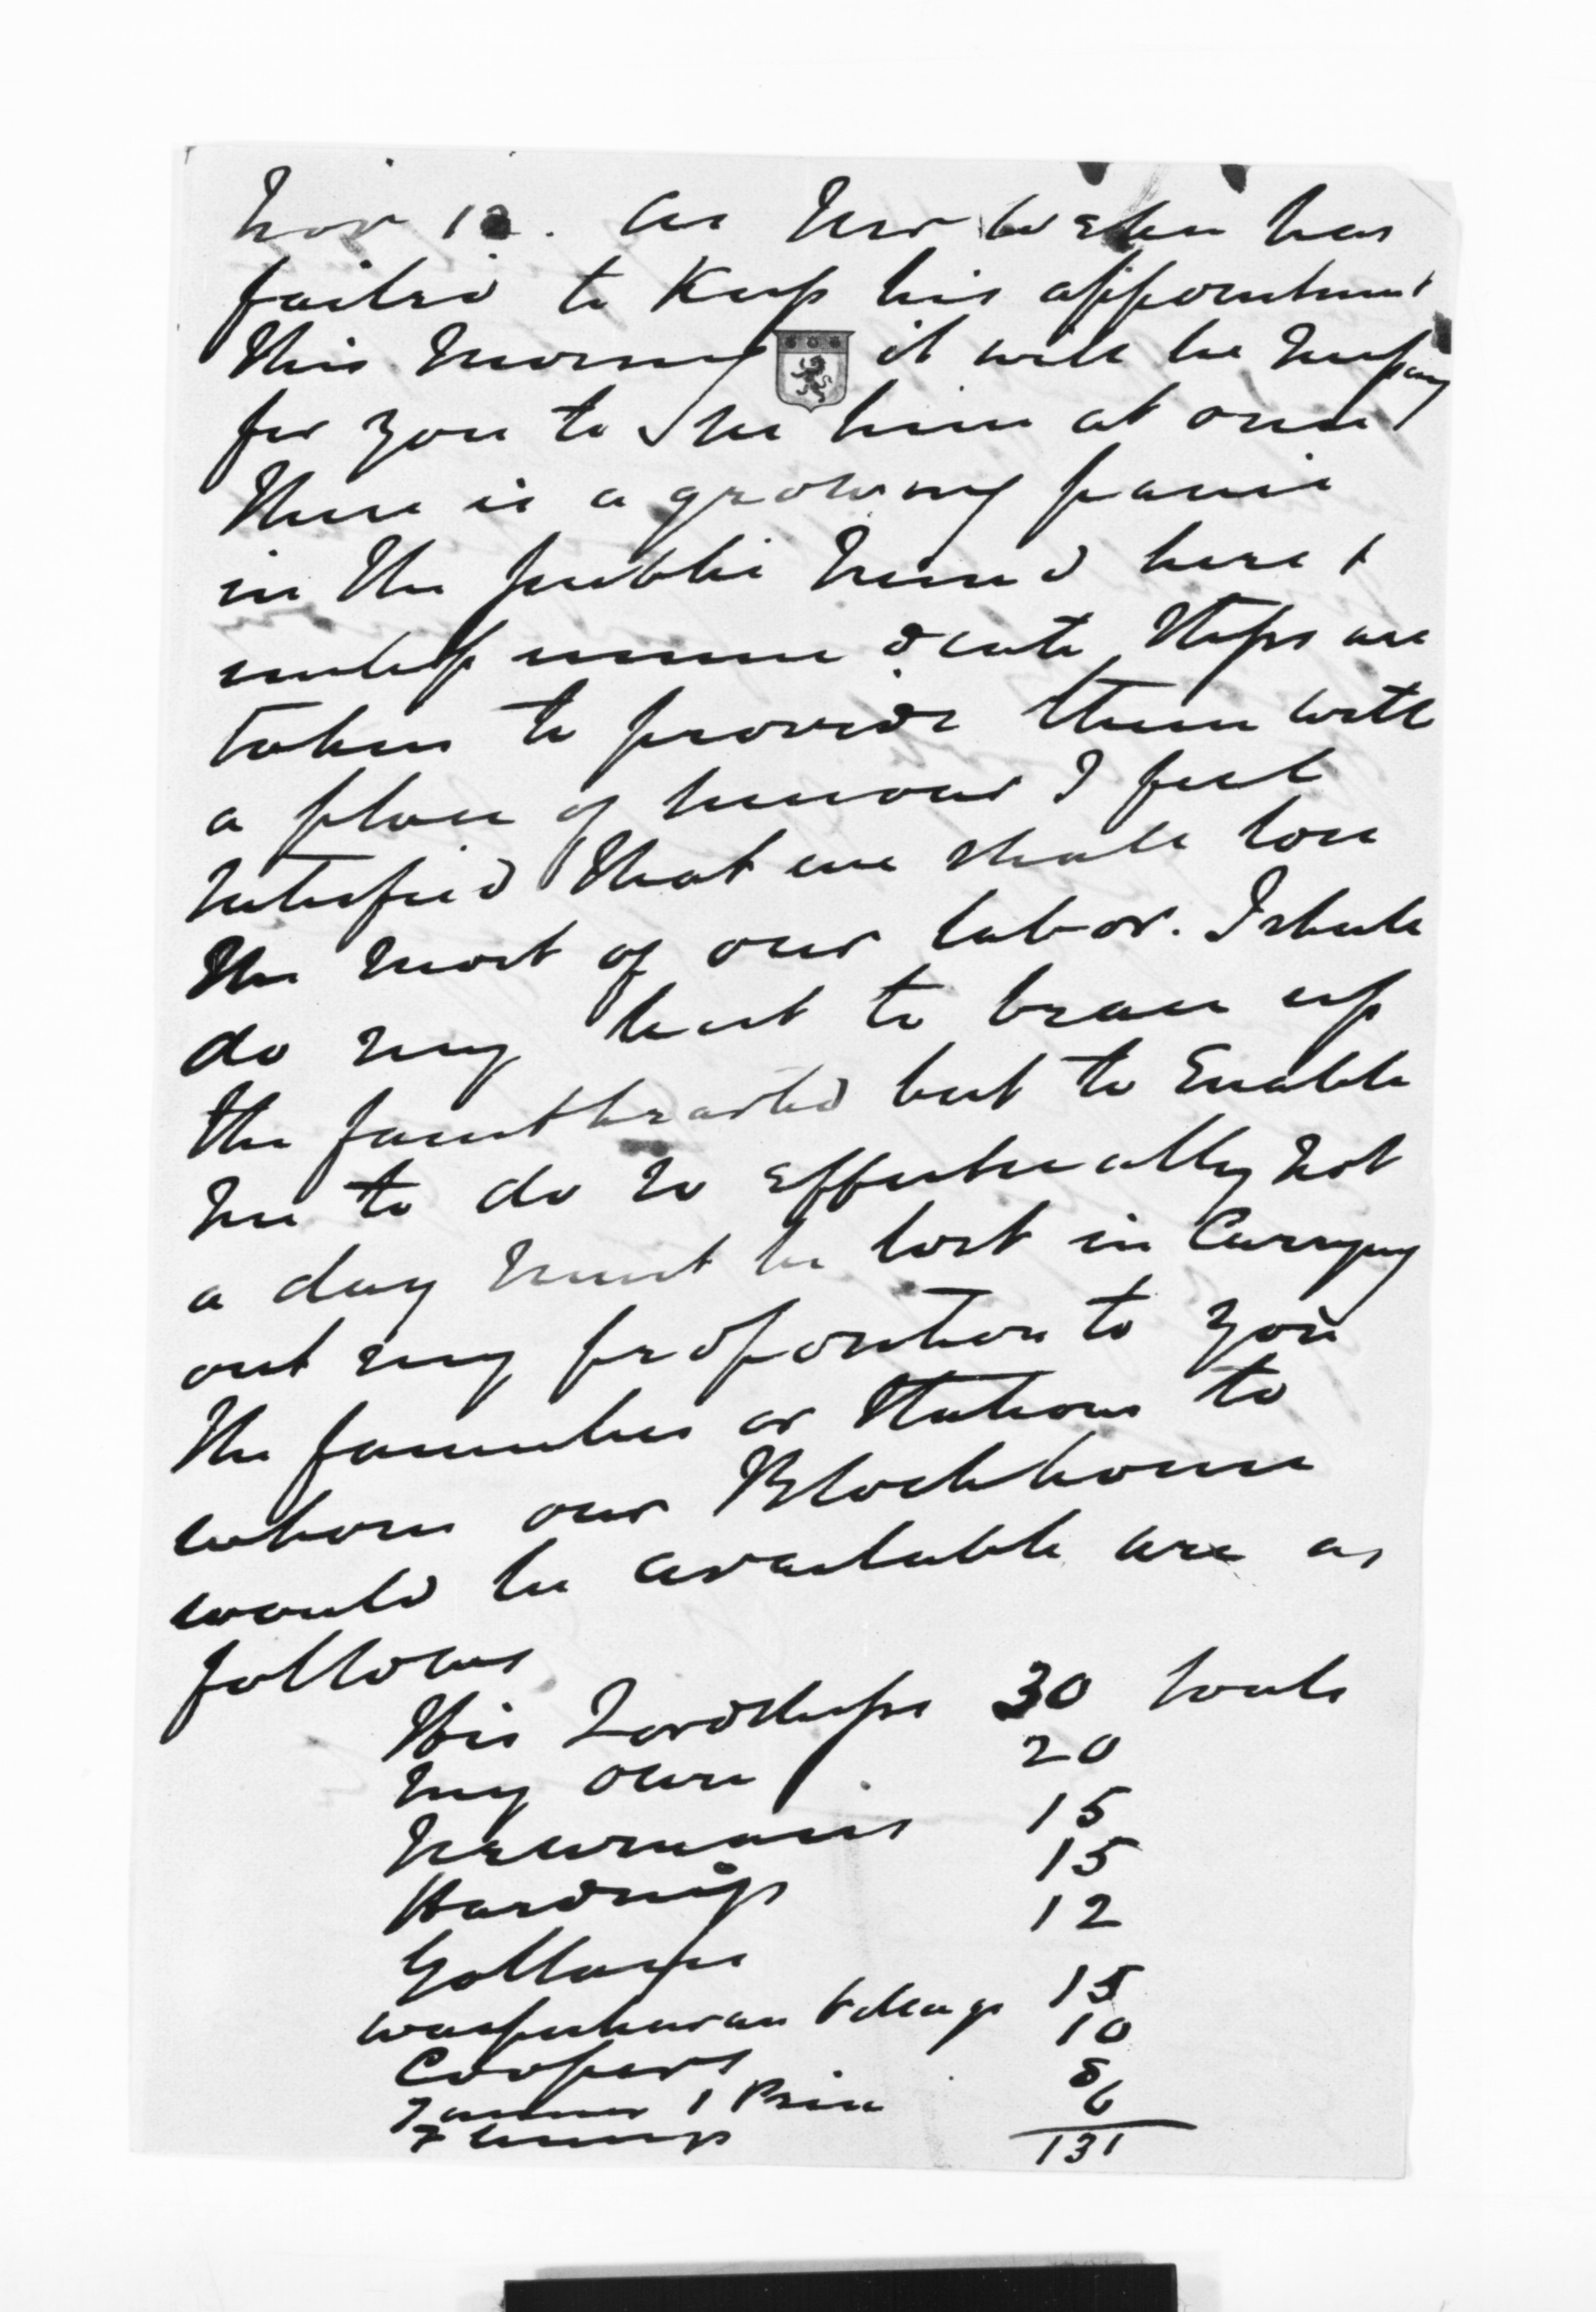 Nov 12. As Mr Weber has
failed to Keep his appointment
this morning it will be necessary
for you to see him at once
There is a growing panic
in the public mind here &
unless immediate steps are
taken to provide them with
a place of I feel
satisfied that we shall lose
the most of our labor. I shall
do my best to brace up
the fainthearted but to Enable
me to do so effectually not
a day must be lost in Carrying
out my proposition to you
The families or Stations to
whom our Blockhouse
would be available are as
follows
His Lordships 30 souls
My own 20
Newmans 15
Hardings 15
Gollans 12
15
Coopers 10
Tanner & Price 8
6
131